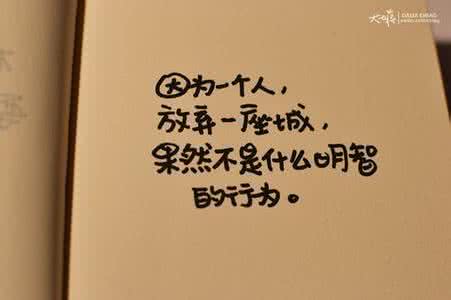 因为一个人，
放弃一座城，
果然不是什么明智
的行为。